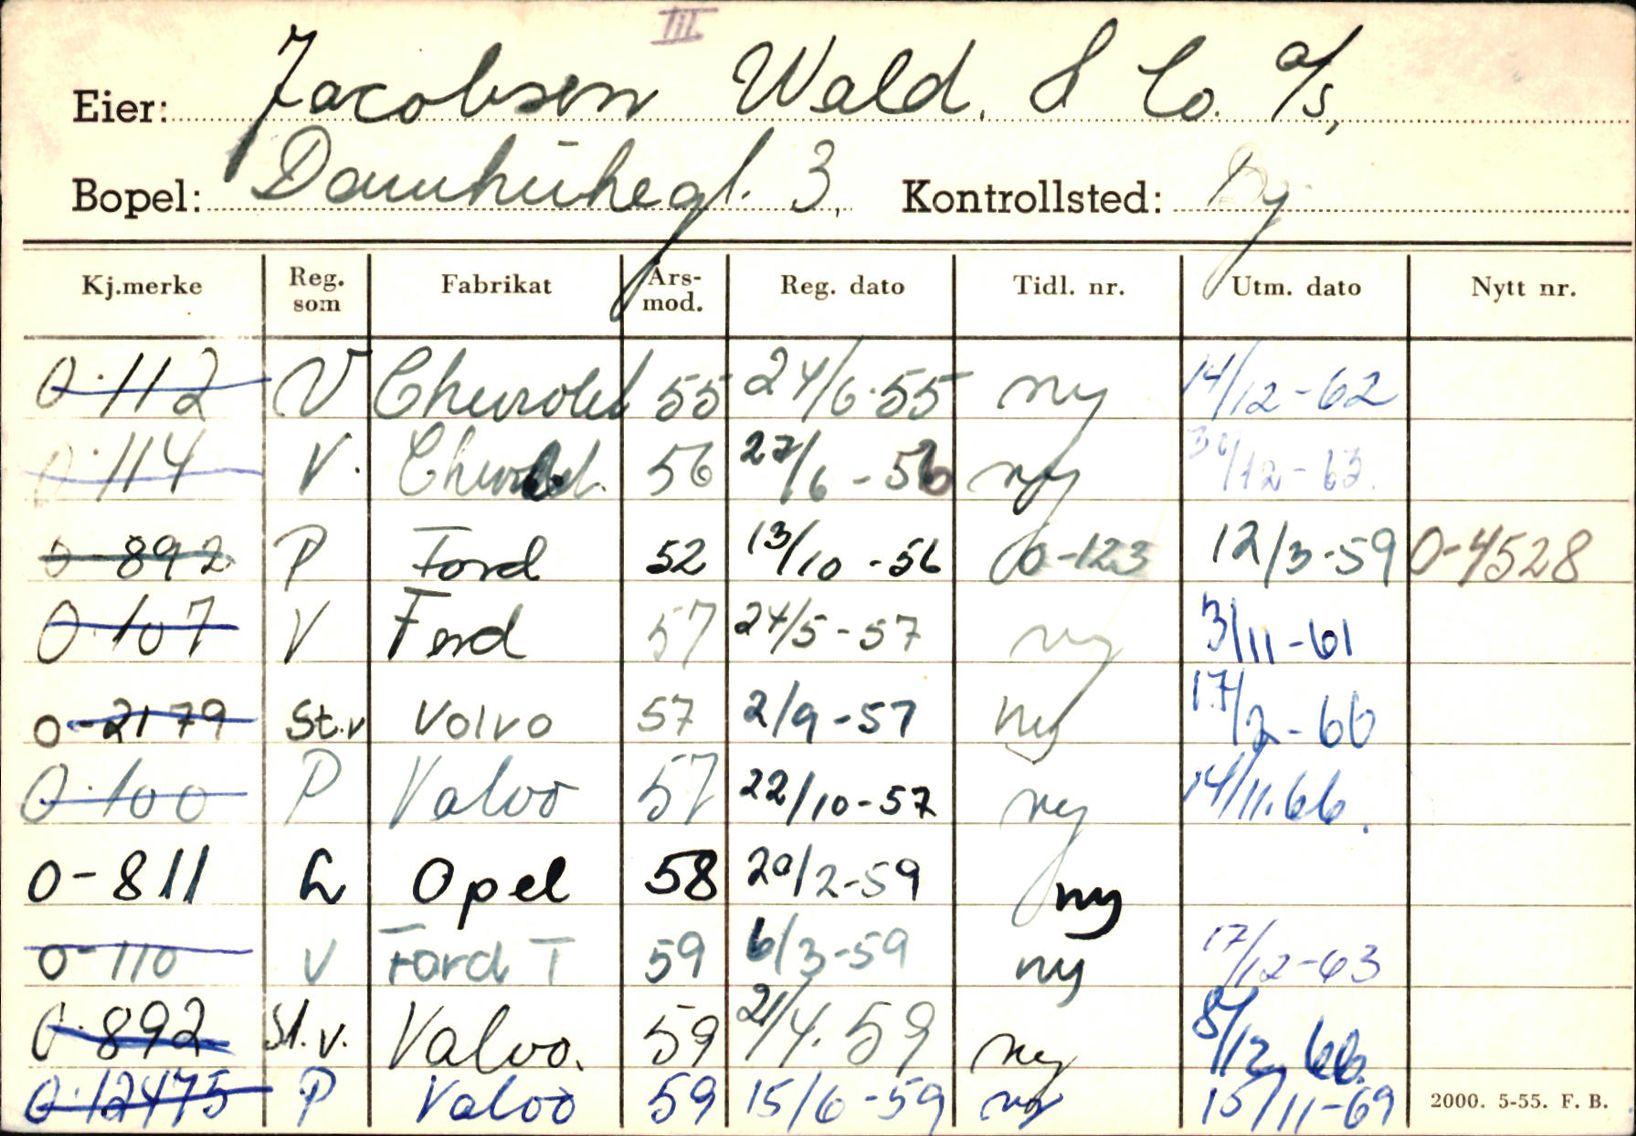 III
Eier: Jacobsen Wald. & Co. a/s,
Bopel: 3, Kontrollsted: By
Kj.merke Reg. som Fabrikat Års-mod. Reg. dato Tidl. nr. Utm. dato Nytt nr.
O-112 V Chevrolet 55 24/6-55 ny 14/12-62
O-114 V. Chevrol. 56 27/6-56 ny 30/12-63.
O-892 P Ford 52 13/10-56 O-123 12/3-59 O-4528
O-107 V Ford 57 24/5-57 ny 3/11-61
O-2179 St.v Volvo 57 2/9-57 ny 17/2-66
O-100 P Volvo 57 22/10-57 ny 14/11.66.
O-811 L Opel 58 20/2-59 ny
O-110 V Ford T 59 6/3-59 ny 17/12-63
O-892 St.v. Volvo. 59 21/4.59 ny 8/12.66.
O-12475 P Volvo 59 15/6-59 ny 15/11-69
2000. 5-55. F. B.